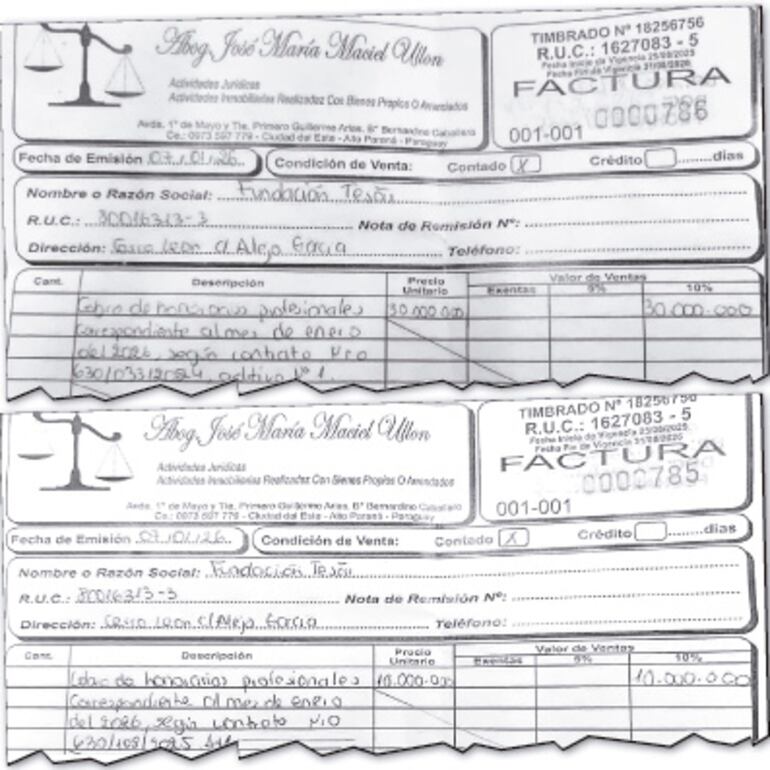 Abog. José María Maciel Ullon
Actividades Jurídicas
Actividades Inmobiliarias Realizadas Con Bienes Propios O Arrendados
Avda. 1° de Mayo y Tte. Primero Guillermo Arias, B° Bernardino Caballero
Ce.: 0973 597 779 - Ciudad del Este - Alto Paraná - Paraguay
TIMBRADO N° 18256756
R.U.C.: 1627083 - 5
Fecha Inicio de Vigencia 25/08/2025
Fecha Fin de Vigencia 31/08/2026
FACTURA
001-001 0000786
Fecha de Emisión 07/01/26
Condición de Venta: Contado X Crédito días
Nombre o Razón Social: Fundación Tesãi
R.U.C.: 80016313-3 Nota de Remisión N°:
Dirección: Cerro Leon c/ Alejo Garcia Teléfono:
Cant. Descripción Precio Unitario Valor de Ventas
Exentas 5% 10%
Cobro de honorarios profesionales 30.000.000 30.000.000
Correspondiente al mes de enero
del 2026, según contrato Nro
630/033/2024, aditivo N° 1.
Abog. José María Maciel Ullon
Actividades Jurídicas
Actividades Inmobiliarias Realizadas Con Bienes Propios O Arrendados
Avda. 1° de Mayo y Tte. Primero Guillermo Arias, B° Bernardino Caballero
Ce.: 0973 597 779 - Ciudad del Este - Alto Paraná - Paraguay
TIMBRADO N° 18256756
R.U.C.: 1627083 - 5
Fecha Inicio de Vigencia 25/08/2025
Fecha Fin de Vigencia 31/08/2026
FACTURA
001-001 0000785
Fecha de Emisión 07/01/26
Condición de Venta: Contado X Crédito días
Nombre o Razón Social: Fundación Tesãi
R.U.C.: 80016313-3 Nota de Remisión N°:
Dirección: Cerro Leon c/ Alejo Garcia Teléfono:
Cant. Descripción Precio Unitario Valor de Ventas
Exentas 5% 10%
Cobro de honorarios profesionales 10.000.000 10.000.000
Correspondiente al mes de enero
del 2026, según contrato Nro
630/108/2025